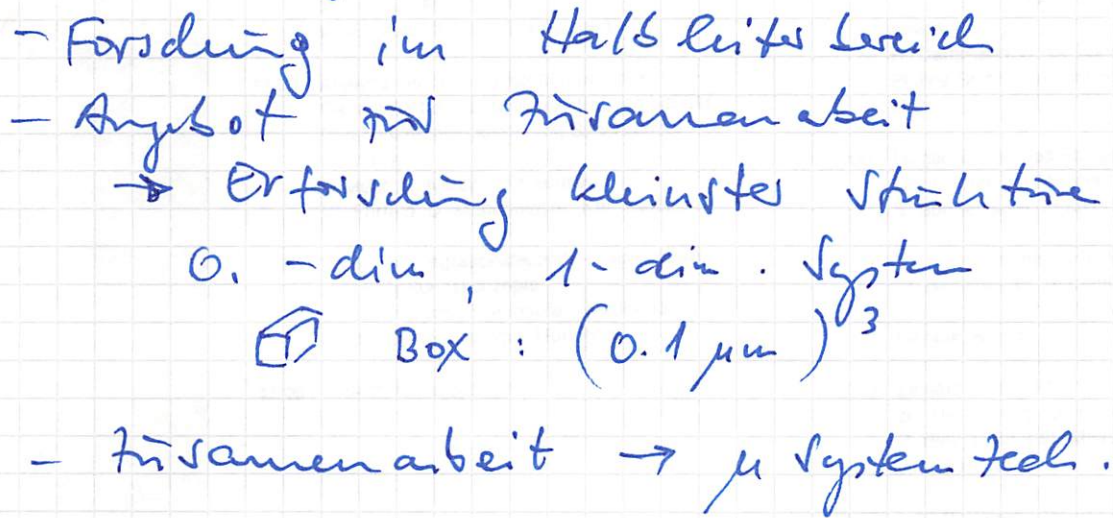 - Forschung im Halbleiterbereich
- Angebot zur Zusammenarbeit
→ Erforschung kleinster Strukture
0. -dim, 1-dim. System
Box : (0.1 µm)³
- Zusammenarbeit → µ Systemtech.